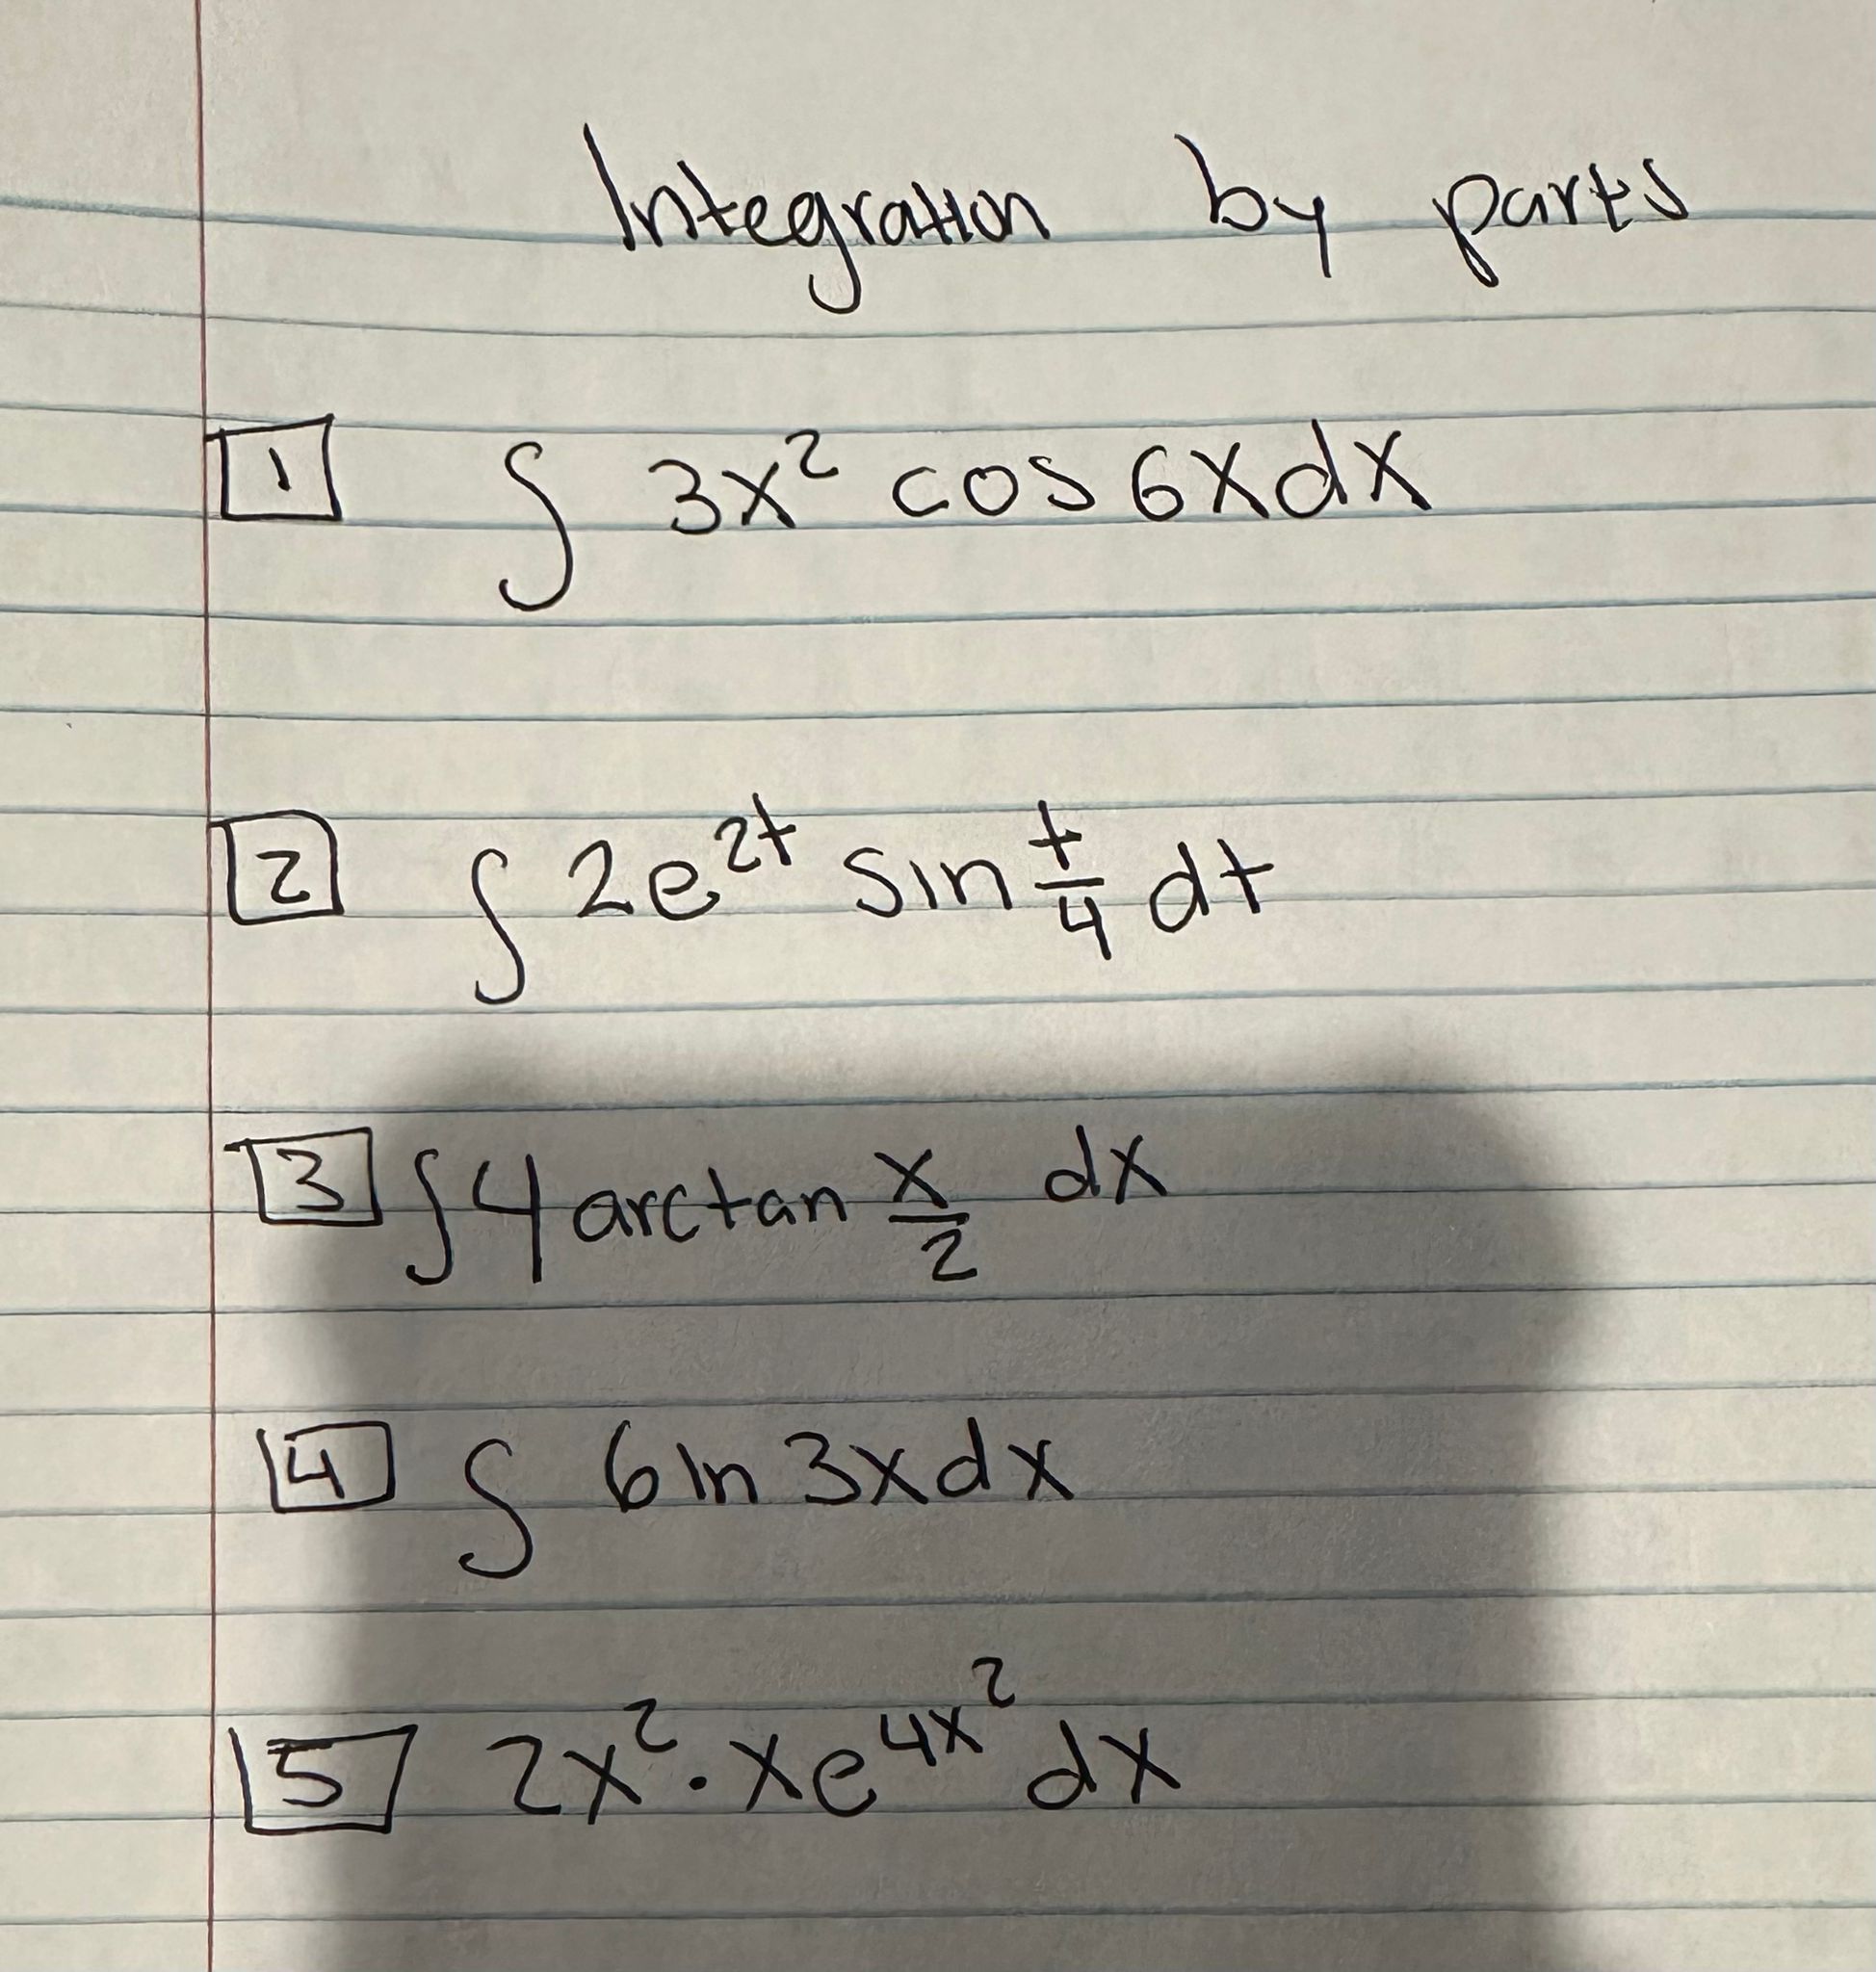 Integration by parts
1 ∫ 3x² cos 6x dx
2 ∫ 2e^{2t} sin t/4 dt
3 ∫ 4 arctan x/2 dx
4 ∫ 6 ln 3x dx
5 2x² · xe^{4x²} dx